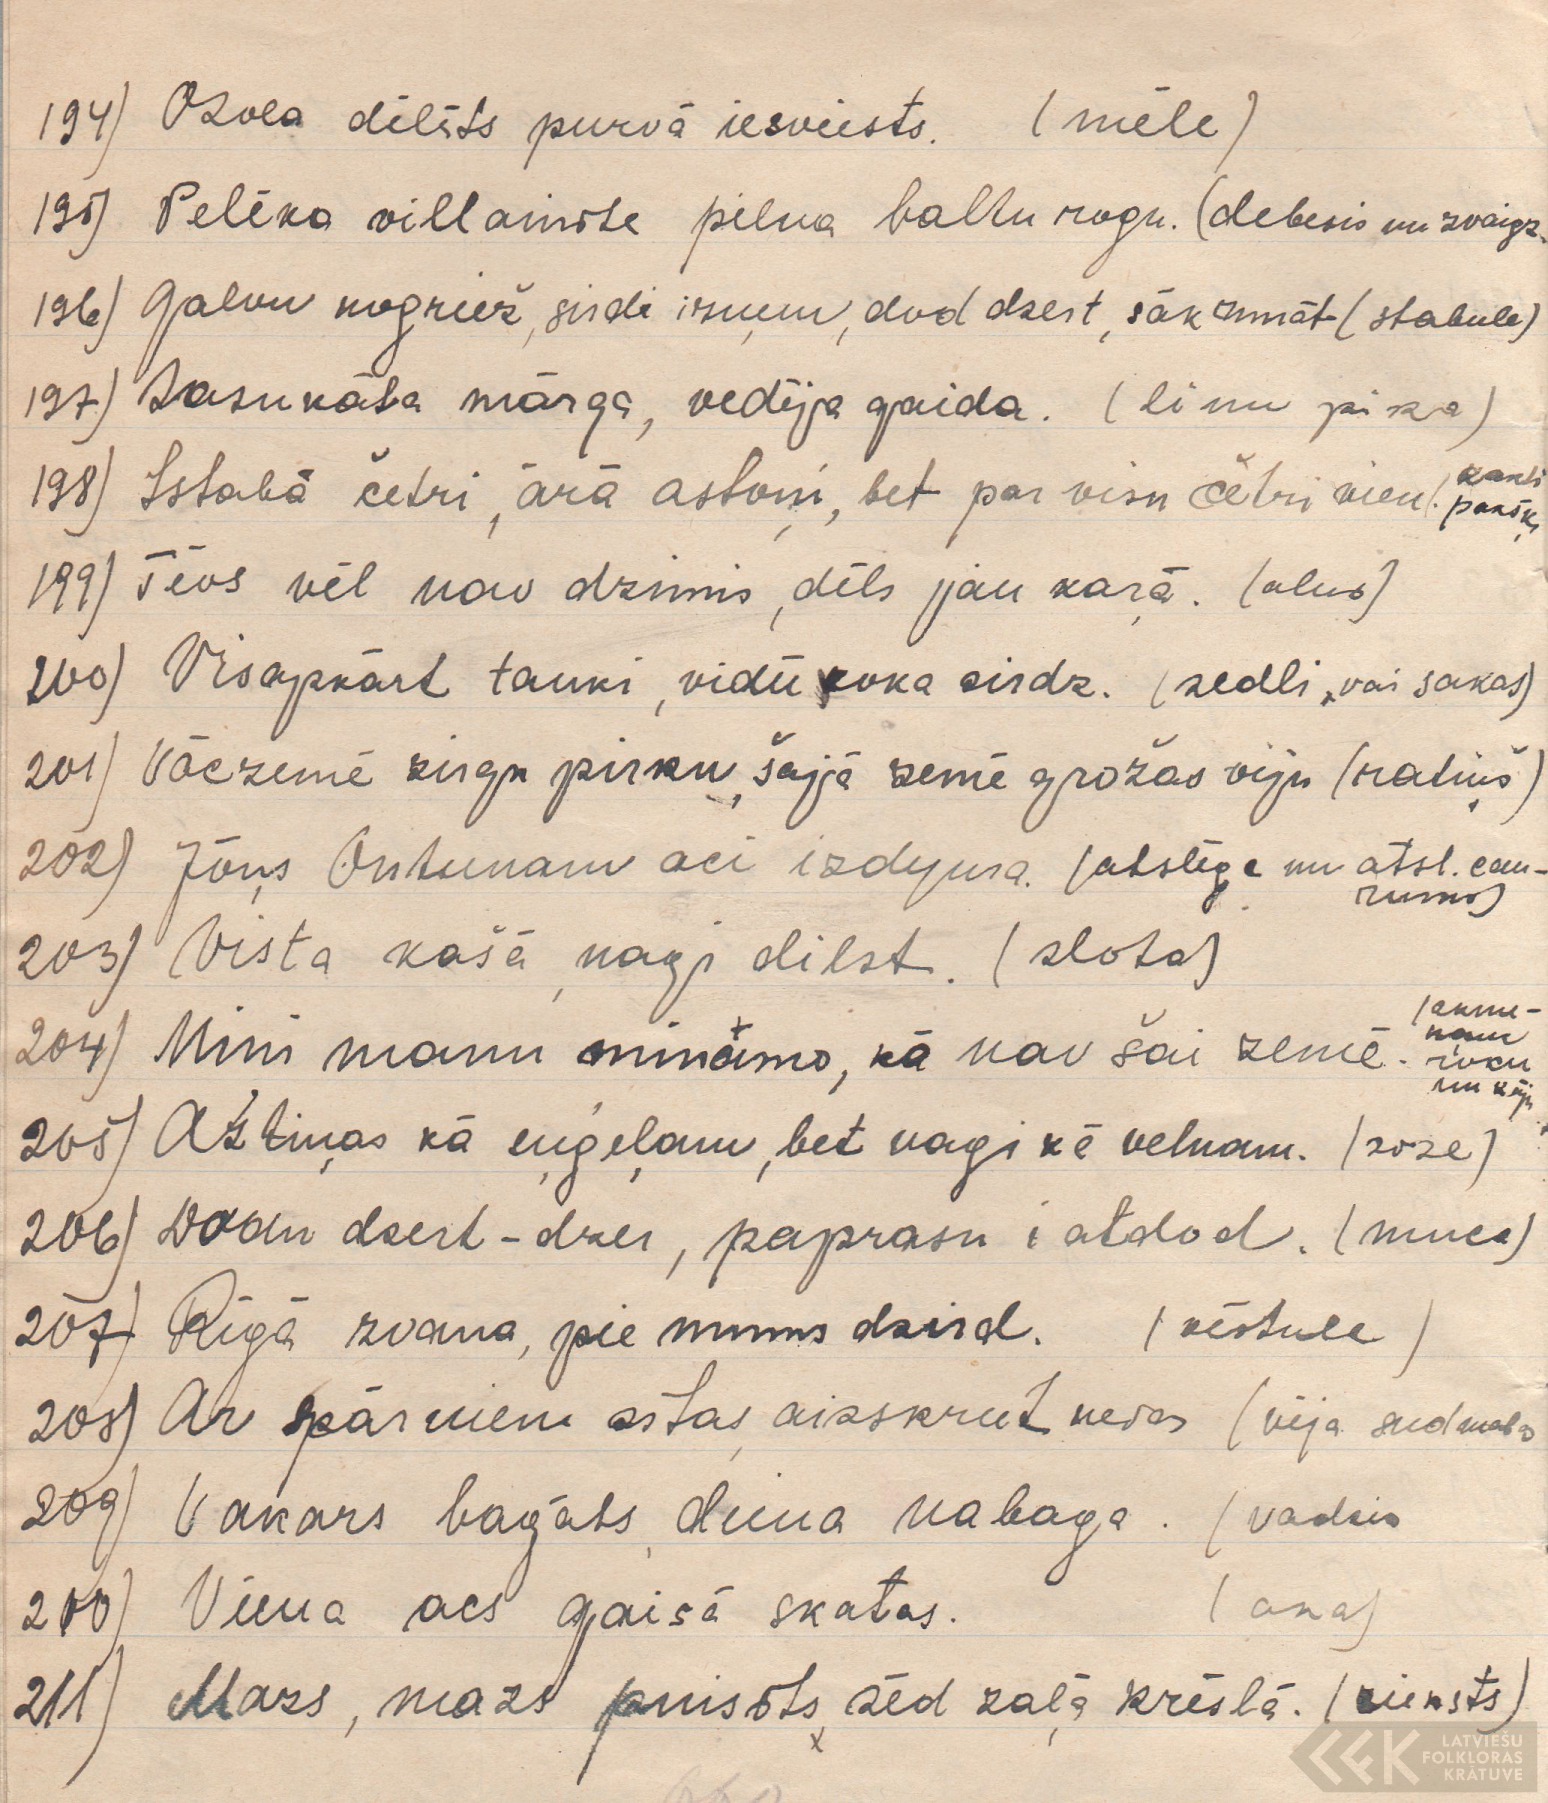 194) Ozola dēlēts purvā iesviests. (mēle)
195) Pelēka villainīte pilna baltu rogu. (debesis un zvaigz.
196) Galvu nogriež, sirdi izņem, dod dzert, sāk runāt (stabule)
197) Sasukāta mārga, vedēja gaida. (linu pika)
198) Istabā četri, ārā astoņi, bet par visu četri vien (kakti
pakšķi
199) Tēvs vēl nav dzimis, dēls jau kaŗā. (alus)
200) Visapkārt tauki, vidū koka sirdz. (sedli, vai sakas)
201) Vāczemē zirgu pirku, šajā zemē grožas viju (ratiņš)
202) Jāņs Antunam aci izdyura. (atslēga un atsl. cau-
rums)
203) Vista kašā, nagi dilst. (slota)
204) Mini manu mināmo, kā nav šai zemē. (akme-
ņam
roku
un kāju
205) Aztiņas kā eņģeļam, bet nagi kā velnam. (roze)
206) Dodu dzert - dzer, paprasu i atdod. (muca)
207) Rīgā zvana, pie mums dzird. (vēstule)
208) Ar spārniem sitas, aizskriet nevar (vēja sudmalas
209) Vakars bagāts, diena nabaga. (vadzis
210) Viena acs gaisā skatas. (aka)
211) Mazs, mazs puisēts, sēd zaļā krēslā. (rieksts)
LATVIEŠU
FOLKLORAS
KRĀTUVE